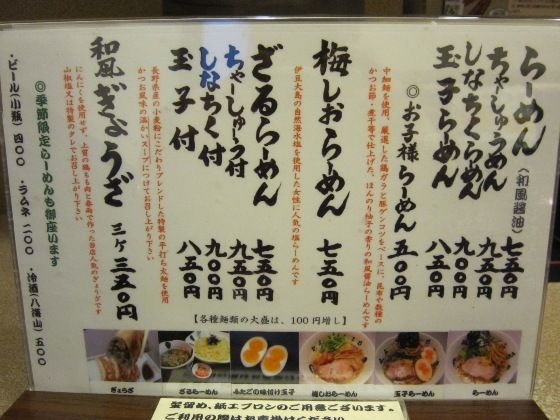 らーめん(和風醤油) 七五〇円
ちゃーしゅうめん 九五〇円
しなちくらーめん 九〇〇円
玉子らーめん 八五〇円
◎お子様らーめん 五〇〇円
中細麺を使用、厳選した鶏ガラと豚ゲンコツをベースに、昆布や数種の
かつお節・煮干等で仕上げた、ほんのり柚子の香りの和風醤油らーめんです
梅しおらーめん 七五〇円
伊豆大島の自然海水塩を使用した女性に人気の塩らーめんです
ざるらーめん 七五〇円
ちゃーしゅーう付 九五〇円
しなちく付 九〇〇円
玉子付 八五〇円
長野県産の小麦粉にこだわりブレンドした特製の平打ち太麺を使用
かつお風味の温かいスープにつけてお召し上がり下さい
和風ぎょうざ 三ケ三五〇円
にんにくを使用せず、上質の鶏もも肉と春雨で作った当店人気のぎょうざです
山椒塩又は特製のタレでお召し上がり下さい
◎季節限定らーめんも御座います
・ビール(小瓶)四〇〇 ・ラムネ二〇〇 ・冷酒(八海山)五〇〇
【各種麺類の大盛は、100円増し】
ぎょうざ ざるらーめん ふたごの味付け玉子 梅しおらーめん 玉子らーめん らーめん
髪留め、紙エプロンのご用意ございます。
ご利用の際はお声掛けください。